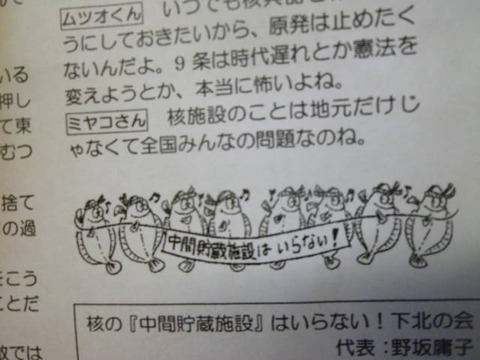 ムツオくん いつでも核兵
うにしておきたいから、原発は止めたく
ないんだよ。9条は時代遅れとか憲法を
変えようとか、本当に怖いよね。
ミヤコさん 核施設のことは地元だけじ
ゃなくて全国みんなの問題なのね。
中間貯蔵施設はいらない!
核の『中間貯蔵施設』はいらない!下北の会
代表:野坂庸子
いる
押し
て東
むつ
捨て
の過
をこう
ことだ
では